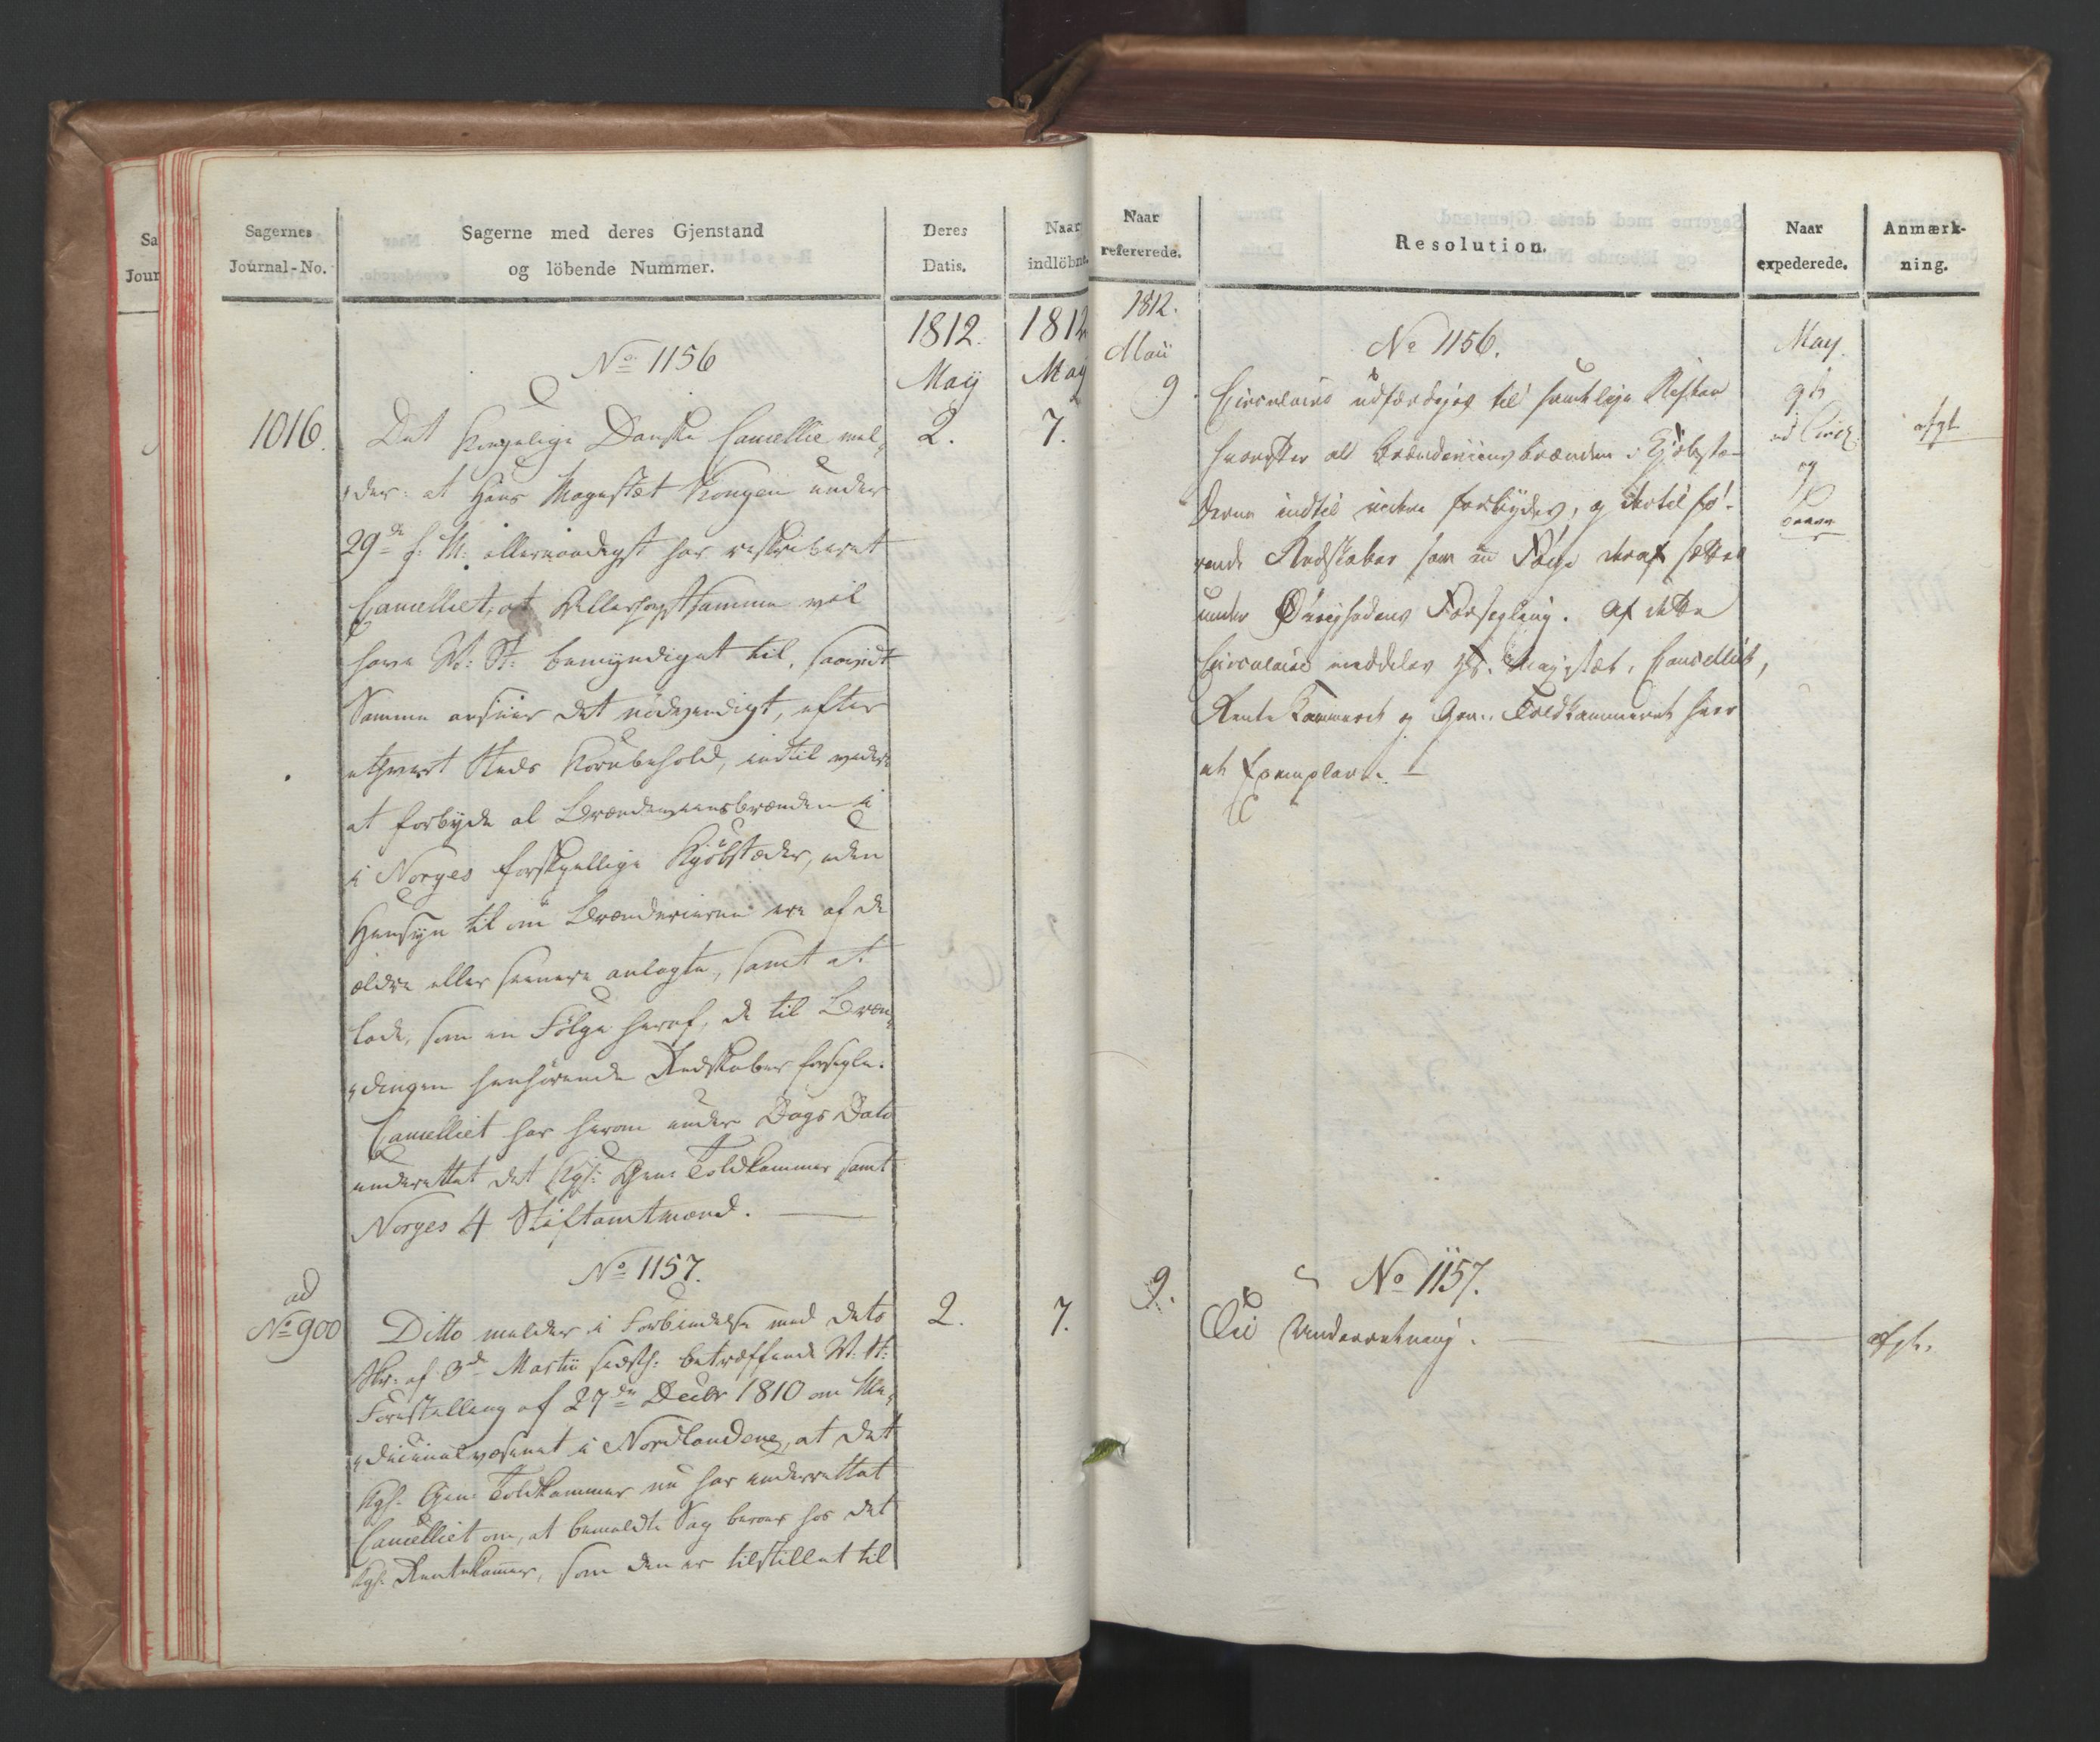 Sagernes
Journal-No.
Sagerne med deres Gjenstand
og löbende Nummer.
Deres
Datis.
Naar
indlöbne.
1812.
1812
May
May
No 1156
1016.
Det Kongelige Danske Cancellie mel-
der: at Hans Majestæt Kongen under
29de f: M: allernaadigst har reskriberet
Cancelliet, at Allerhøystsamme vil
have V: St: bemyndiget til, saavidt
Samme ansiver det nødvendigt, efter
ethvert Steds Kornbehold, indtil videre
at forbyde al Brændeviinsbrænden i
i Norges forskjellige Kjöbstæder, uden
Hensyn til om Brænderierne ere af de
ældre eller seenere anlagte, samt at
lade, som en Fölge heraf, de til Bræn-
dingen henhörende Redskaber forsegle.
Cancelliet har herom under Dags Dato
underrettet det Kgl: Gene Toldkammer samt
Norges 4 Stiftamtmænd.
2.
7.
No 1157.
ad
No 900
Ditto melder i Forbindelse med dets
Skr: af 3de Martii sidstl: betræffende V: St:
Forestilling af 27de Decbr 1810 om Me-
dicinalvæsenet i Nordlandene, at det
Kgl. Gene Toldkammer nu har underrettet
Cancelliet om, at bemeldte Sag beroer hos det
Kgl. Rentekammer, som den er tilstillet til
2.
7.
Naar
refererede.
Resolution.
Naar
expederede.
Anmærk-
ning.
1812.
Maii
9
No 1156.
Circulaire udfærdiges til samtlige
hvorefter al Brændeviins brænden i Kjöbstæ-
derne indtil videre forbydes, og dertil hö-
rende Redskaber som en Fölge deraf sættes
under Övrighedens Forsegling. Af dette
Circulaire meddeles Hs. Majestæt, Cancelliet,
Rente Kammeret og Gen: Toldkammeret hver
et Exemplar.
May.
9de
ad Circl.
og
afgt
9.
No 1157.
Til Underretning.
afgt.